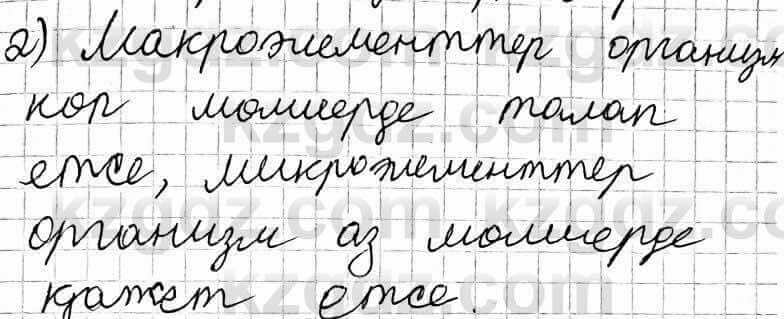 2) Макроэлементтер организм
көп мөлшерде талап
етсе, микроэлементтер
организм аз мөлшерде
қажет етсе.